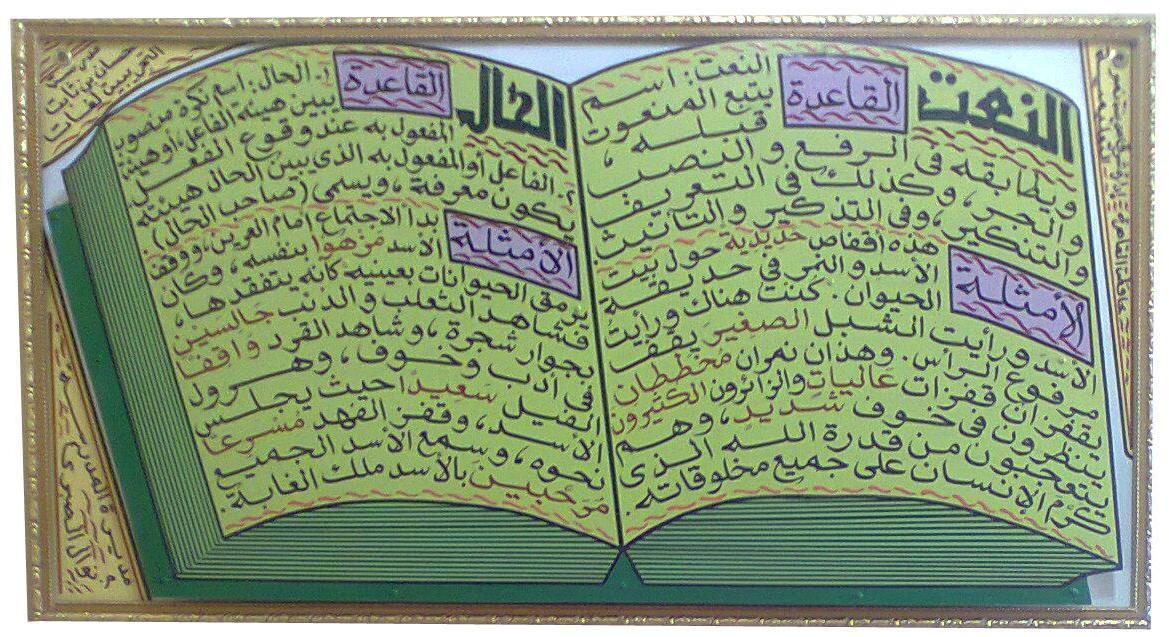 النعت
القاعدة
النعت: اسم
يتبع المنعوت
قبله،
ويطابقه في الرفع و النصب
والجر، وكذلك في التعريف
والتنكير، وفي التذكير والتأنيث
الأمثلة
هذه أقفاص حديدية حول بيت
الأسد و النمر في حديقة
الحيوان. كنت هناك ورأيت
الأسد ورأيت الشبل الصغير يقف
مرفوع الرأس. وهذان نمران مخططان
يقفزان قفزات عاليات والزائرون الكثيرون
ينظرون في خوف شديد، وهم
يتعجبون من قدرة الله الذي
كرم الإنسان على جميع مخلوقاته.
الحال
القاعدة
١- الحال: اسم نكرة منصوب
يبين هيئة الفاعل أو هيئة
المفعول به عند وقوع الفعل
٢- الفاعل أو المفعول به الذي يبين الحال هيئته
يكون معرفة، ويسمى (صاحب الحال)
الأمثلة
بدأ الاجتماع أمام العرين، ووقف
الأسد مزهوا بنفسه، وكان
يرمق الحيوانات بعينيه كأنه يتفقدها،
فشاهد الثعلب والذئب جالسين
بجوار شجرة، وشاهد القرد واقفا
في أدب وخوف، وهرول
الفيل سعيدا حيث يجلس
الأسد، وقفز الفهد مسرعا
نحوه، وسمع الأسد الجميع
مرحبين بالأسد ملك الغابة.
حسان بن ثابت
مديرة المدرسة
نوال